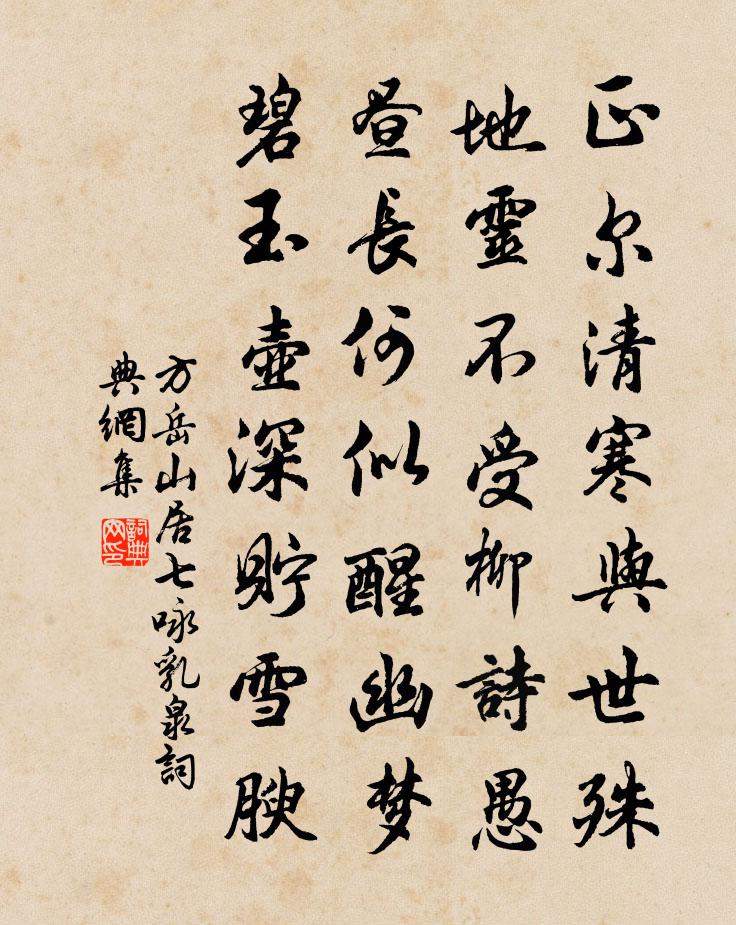 正尔清寒與世殊
地靈不受柳詩愚
昼長何似醒幽梦
碧玉壺深貯雪腴
方岳山居七咏乳泉詞
典網集
詞典网印